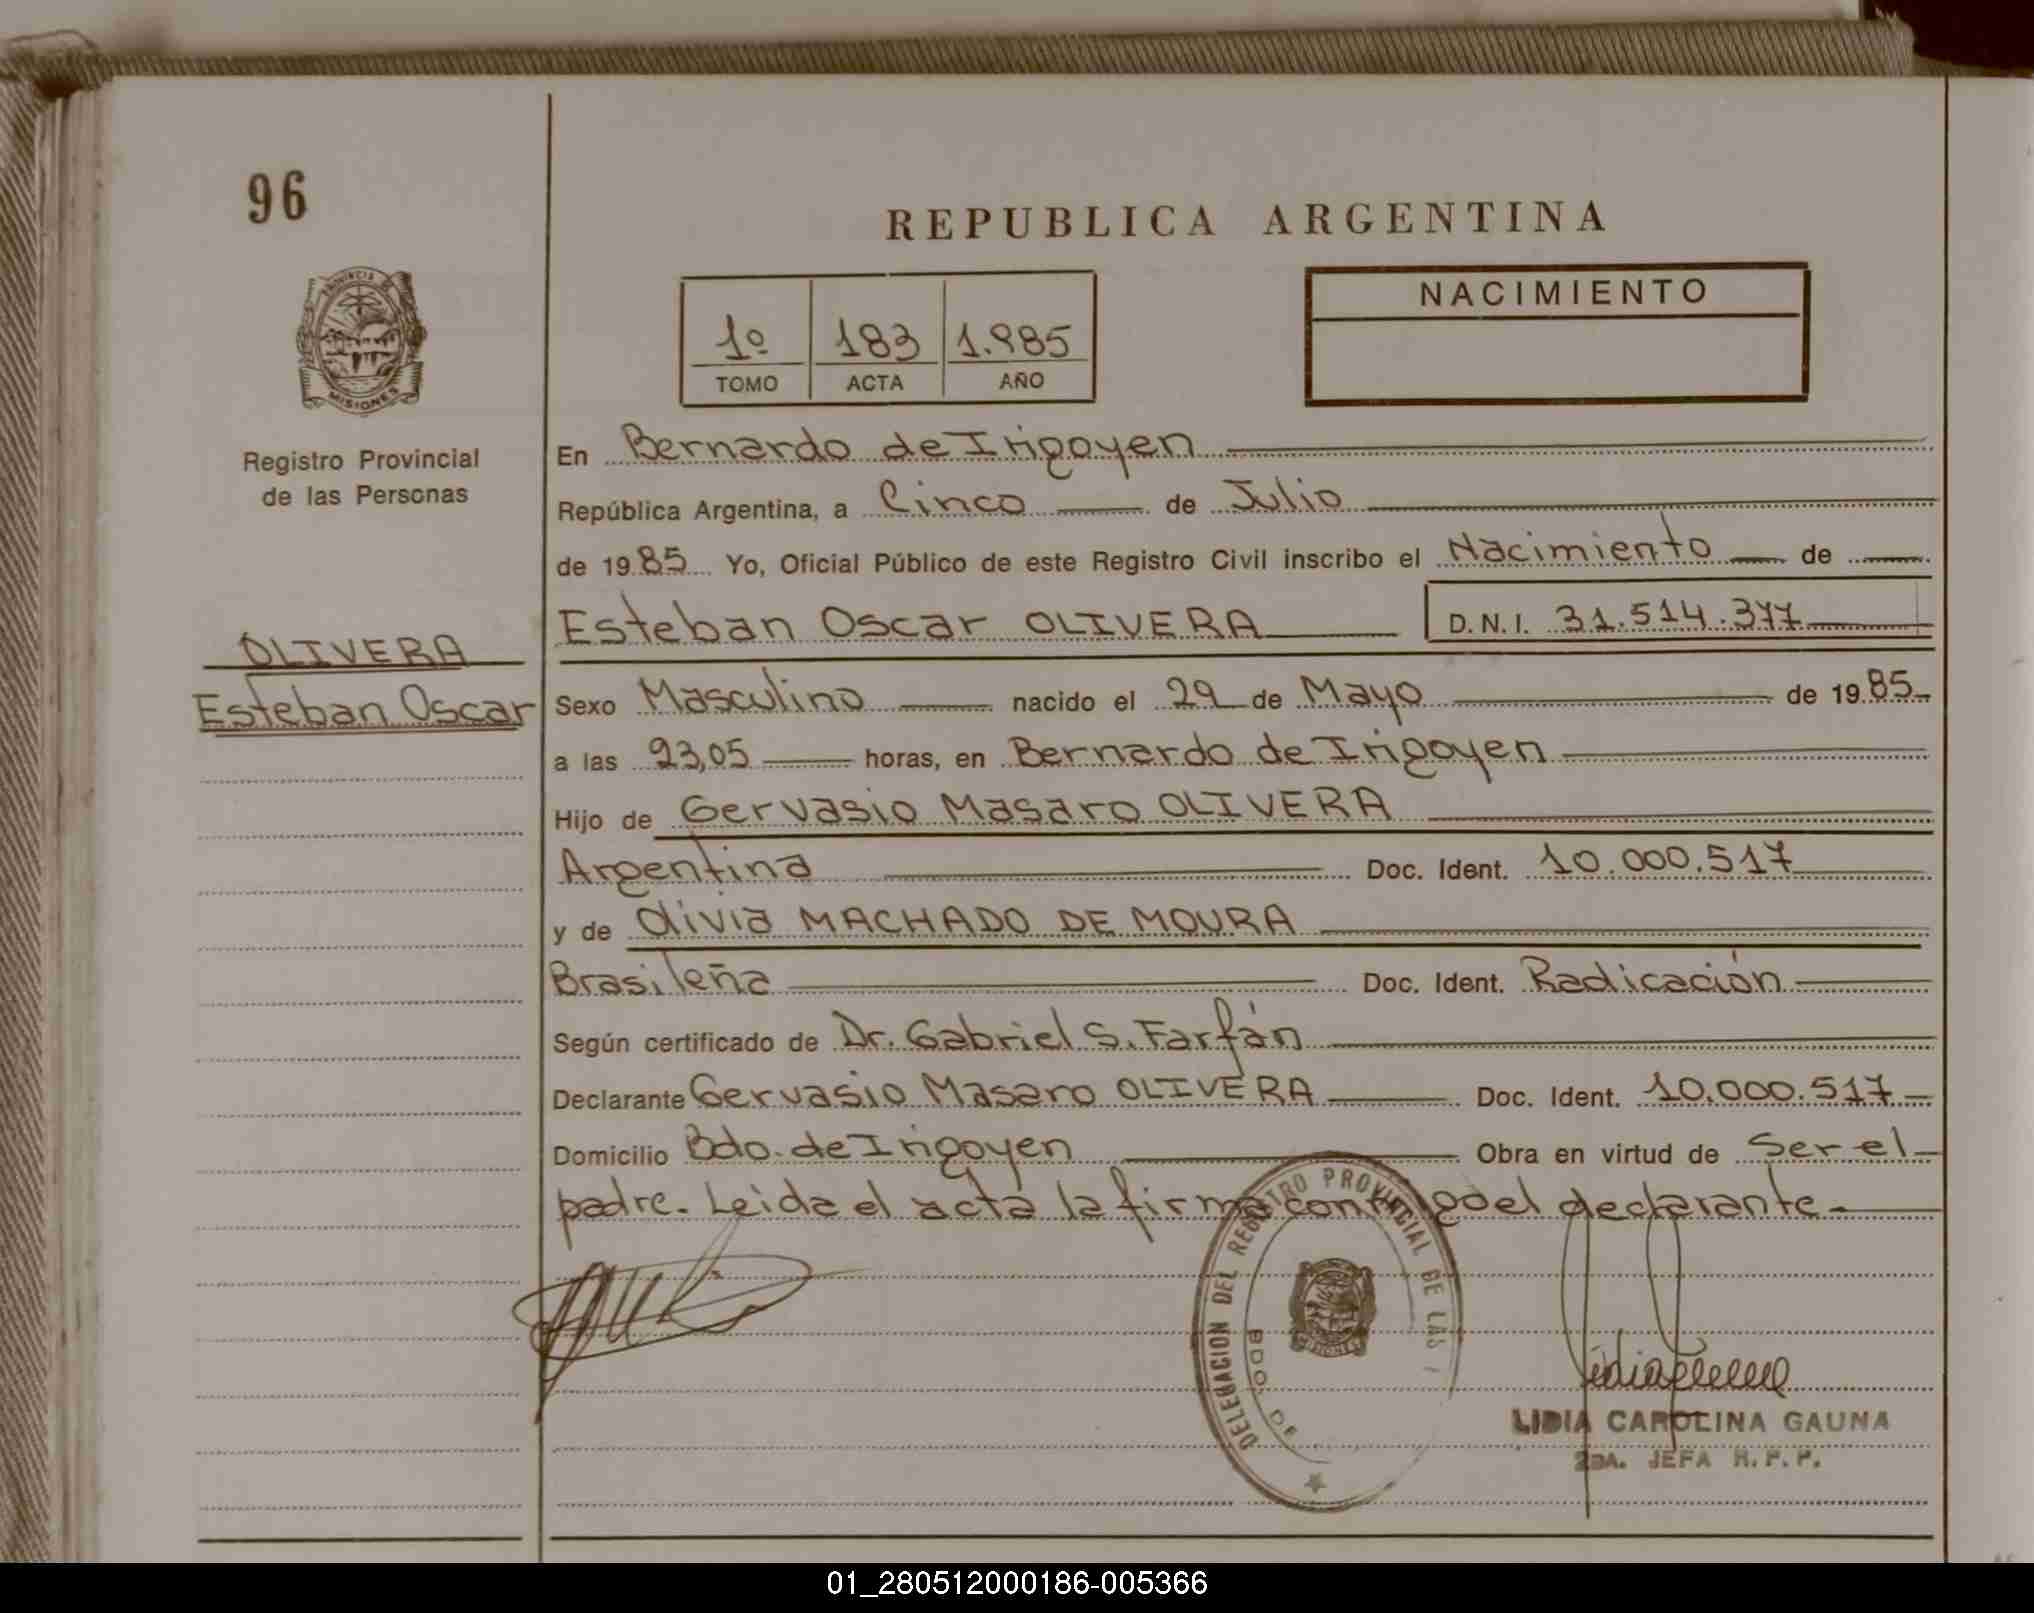 96
REPUBLICA ARGENTINA
PROVINCIA DE
MISIONES
1º 183 1.985
TOMO ACTA AÑO
NACIMIENTO
Registro Provincial
de las Personas
En Bernardo de Irigoyen
República Argentina, a Cinco de Julio
de 1985 Yo, Oficial Público de este Registro Civil inscribo el Nacimiento de
Esteban Oscar OLIVERA D.N.I. 31.514.377
OLIVERA
Esteban Oscar
Sexo Masculino nacido el 29 de Mayo de 1985
a las 23,05 horas, en Bernardo de Irigoyen
Hijo de Gervasio Masaro OLIVERA
Argentina Doc. Ident. 10.000.517
y de Olivia MACHADO DE MOURA
Brasileña Doc. Ident. Radicación
Según certificado de Dr. Gabriel S. Farfán
Declarante Gervasio Masaro OLIVERA Doc. Ident. 10.000.517
Domicilio Bdo. de Irigoyen Obra en virtud de Ser el
padre. Leida el acta la firma conmigo el declarante.
DELEGACION DEL REGISTRO PROVINCIAL DE LAS
BDO. DE
LIDIA CAROLINA GAUNA
2DA. JEFA R.P.P.
01_280512000186-005366